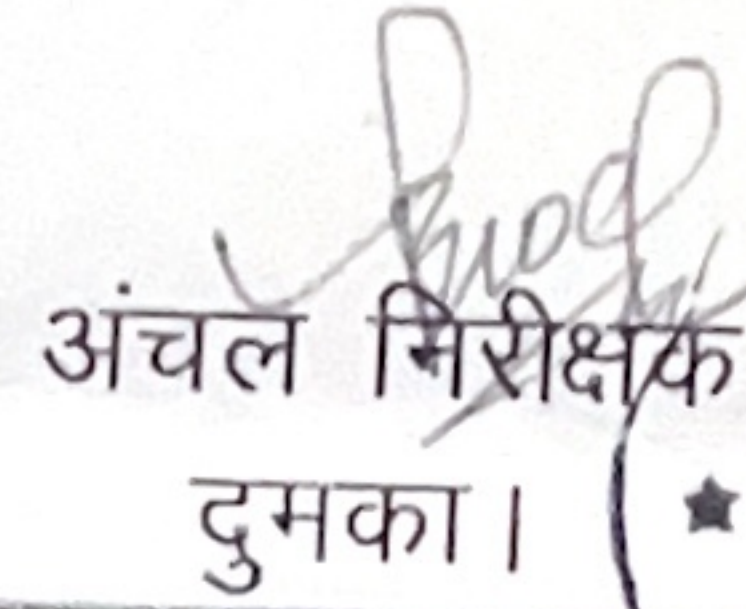 अंचल निरीक्षक
दुमका।